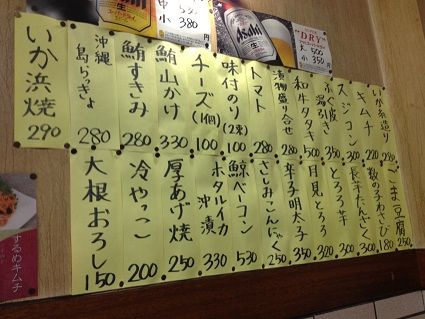 中
小 380
Asahi
生
Asahi
生
DRY
大 500
小 350
いか糸造り 280
キムチ 220
スジコーン 300
ふぐ皮湯引き 350
和牛タタキ 500
漬物盛り合せ 280
トマト 280
味付のり(2束) 100
チーズ(1個) 100
鮪山かけ 330
鮪すきみ 280
沖縄島らっきょ 280
いか浜焼 290
ごま豆腐 250
数の子わさび 180
長芋たんざく 300
とろろ芋 300
月見とろろ 320
辛子明太子 350
さしみこんにゃく 250
鯨ベーコン 530
ホタルイカ沖漬 330
厚あげ焼 250
冷やっこ 200
大根おろし 150
するめキムチ